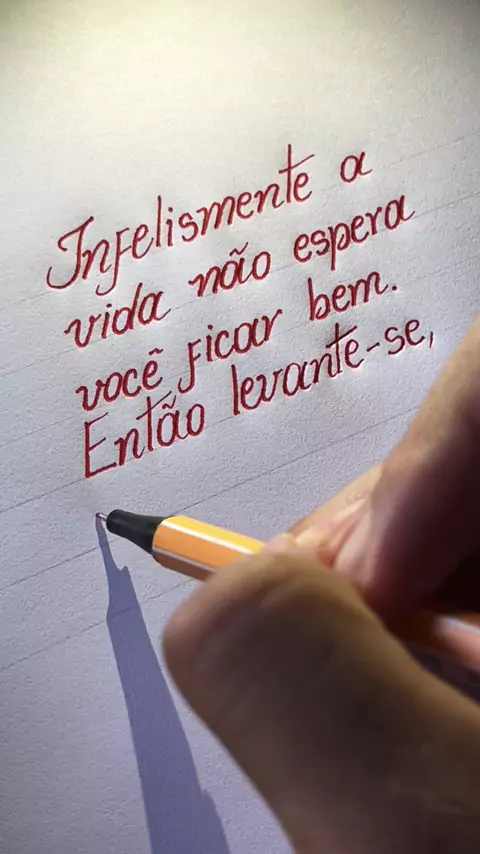 Infelismente a
vida não espera
você ficar bem.
Então levante-se,